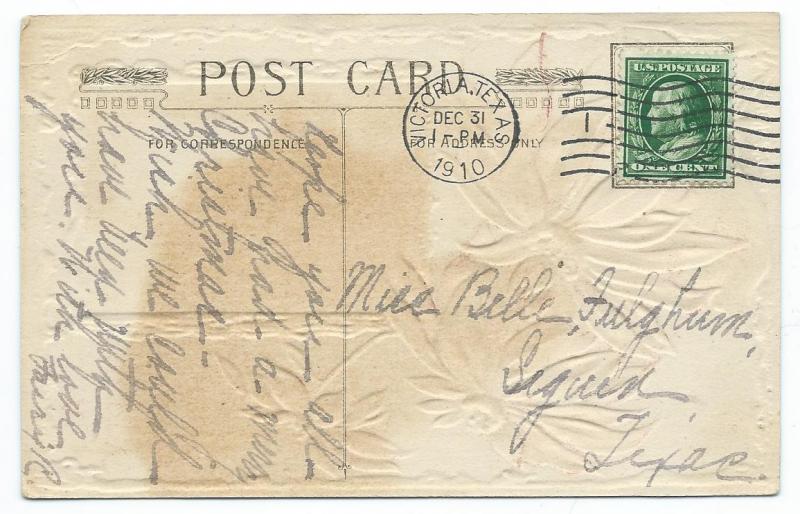 POST CARD
FOR CORRESPONDENCE
FOR ADDRESS ONLY
VICTORIA, TEXAS
DEC 31
1-PM
1910
1
U.S. POSTAGE
ONE CENT
Hope you all
have had a merry
Christmas-
Wish we could
have been with
you. With love
Miss Belle Fulghum,
Seguin,
Texas.